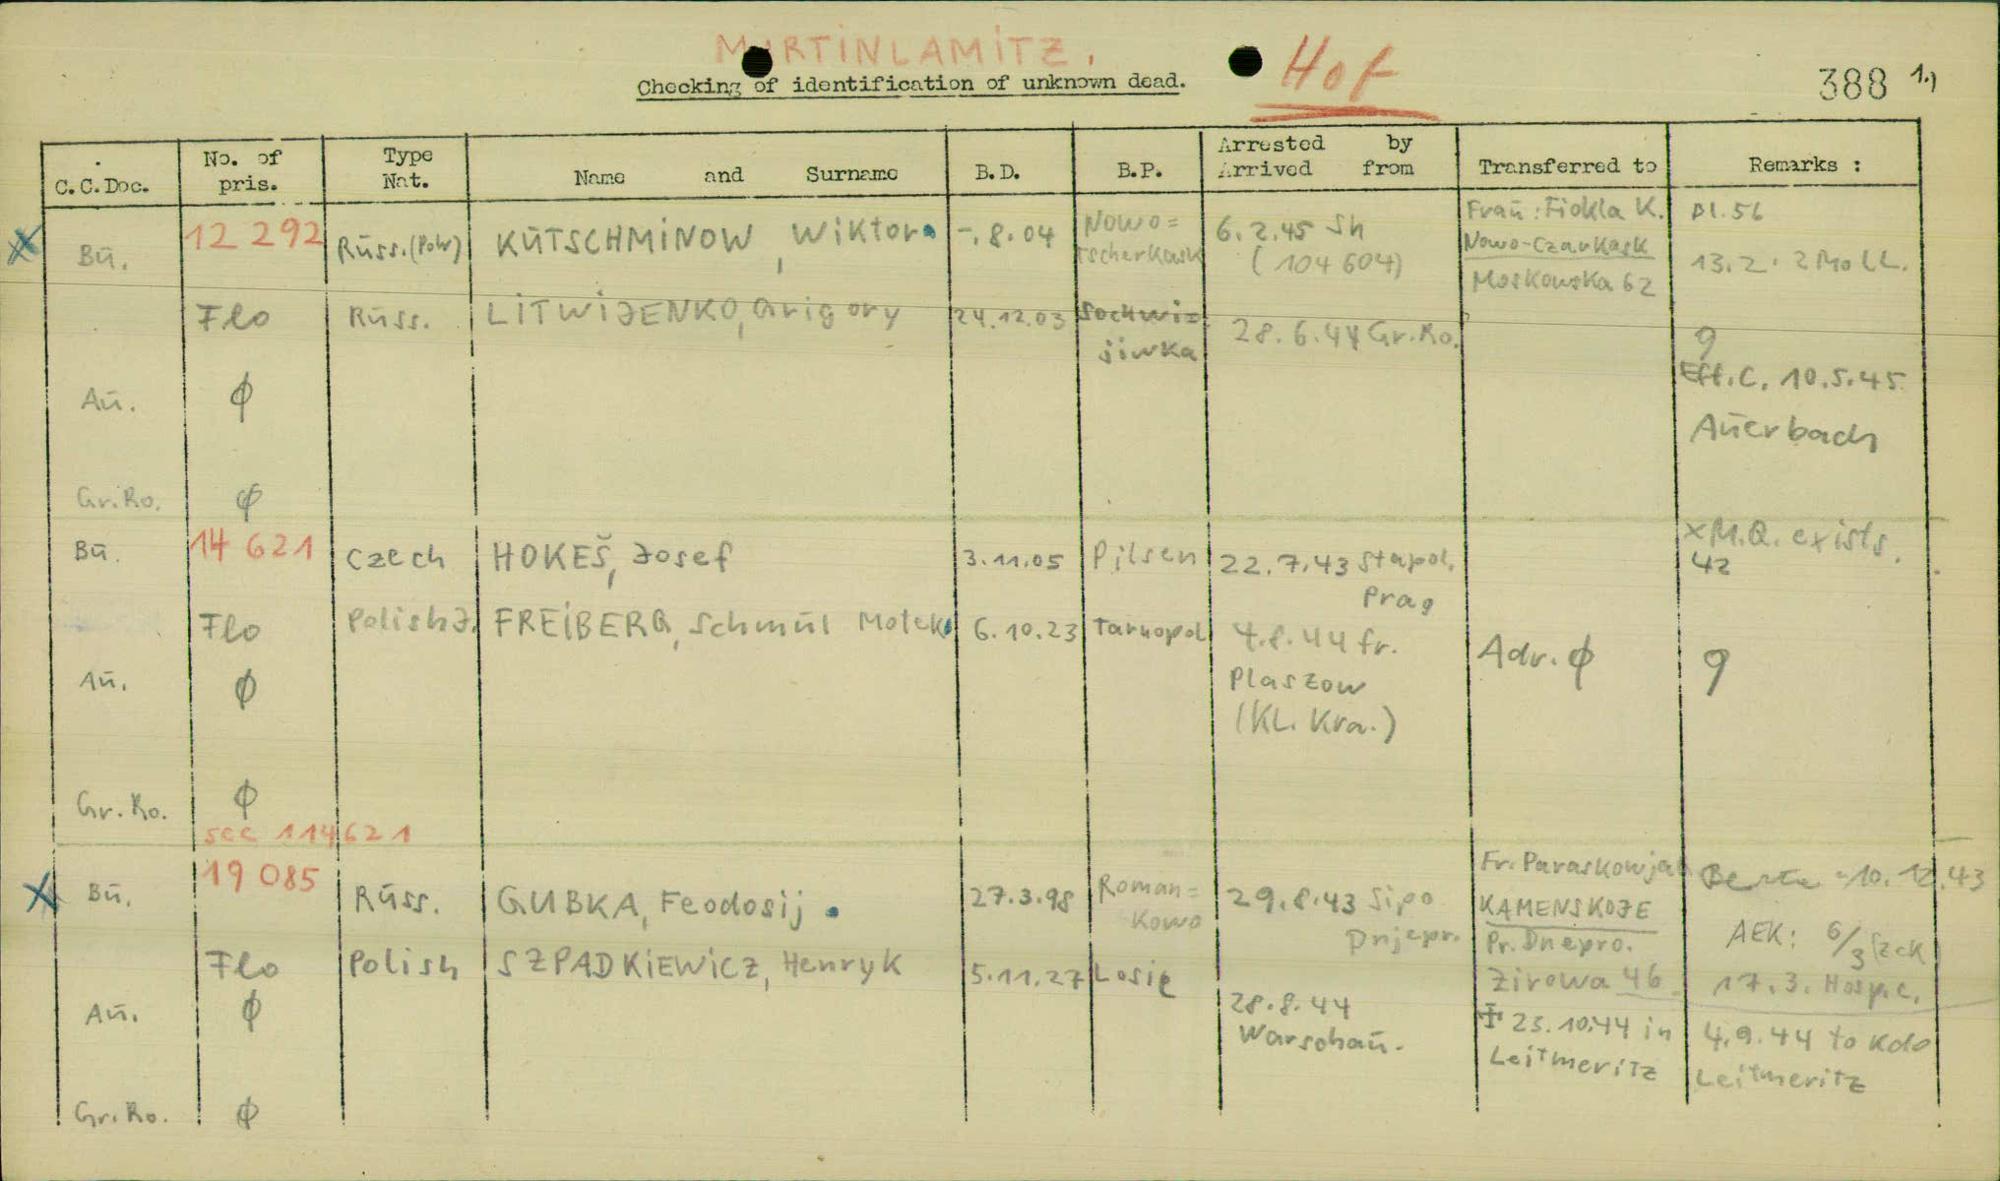 MARTINLAMITZ. Hof
Checking of identification of unknown dead. 388 1.)
C.C.Doc. No. of pris. Type Nat. Name and Surname B.D. B.P. Arrested by Arrived from Transferred to Remarks :
Bü. 12 292 Rüss. KÜTSCHMINOW, Wiktor -.8.04 Nowo=tscherkask 6.2.45 Sh (104 604) Fraü: Fiokla K. Bl.56
Nowo-Czarkask
Moskowska 62 13.2.
Flo Rüss. LITWIJENKO, Grigory 24.12.03 28.6.44 Gr.Ro. 9
Eff.C. 10.5.45
Aü. ϕ Aüerbach
Gr.Ro. ϕ
Bü. 14 621 Czech HOKEŠ, Josef 3.11.05 Pilsen 22.7.43 Stapol. Prag x M.Q. exists.
42
Flo Polish J. FREIBERG, Schmül Motek 6.10.23 Tarnopol 4.8.44 fr. Adr. ϕ 9
Aü. ϕ Plaszow
(KL. Kra.)
Gr.Ro. ϕ
see 114621
Bü. 19 085 Rüss. GUBKA, Feodosij 27.3.98 Roman=kowo 29.8.43 Sipo Dnjepr. Fr. Paraskowja 10.12.43
KAMENSKOJE
Pr. Dnepro. AEK: 6/3
Zirowa 46 17.3. Hosp.
Flo Polish SZPADKIEWICZ, Henryk 5.11.27 Losie 28.8.44 23.10.44 in 4.9.44 to Kdo
Aü. ϕ Warschaü. Leitmeritz Leitmeritz
Gr.Ro. ϕ